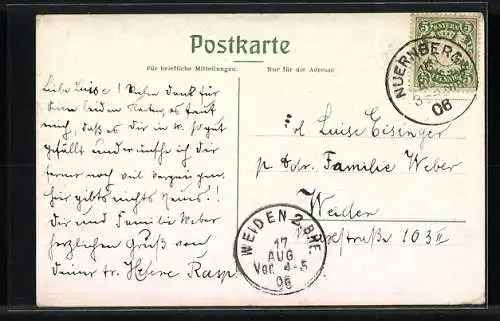 5 BAYERN 5
Postkarte
Für briefliche Mitteilungen. Nur für die Adresse
NUERNBERG
06
Liebe Luise! Vielen Dank für
Deine beiden Karten, es freut
mich, daß es dir in W. so gut
gefällt und wünsche ich dir
ferner noch viel Vergnügen
hier gibts nichts Neues!!
Dir und Familie Weber
herzlichen Gruß von
deiner tr. Helene Rasp.
Luise Eisinger
p. Adr. Familie Weber
Weiden
103 II
WEIDEN 2. BHF.
17
AUG
Vor. 4-5
06